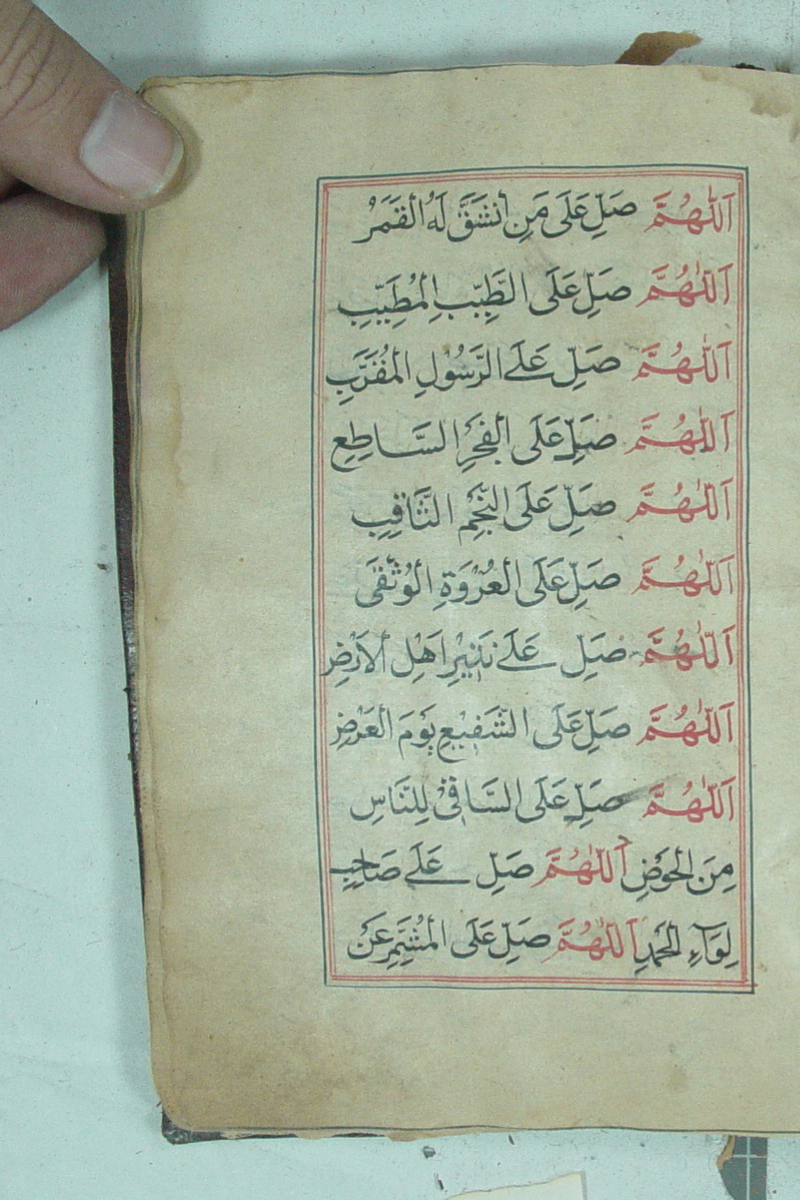 اَللّٰهُمَّ صَلِّ عَلَى مَنِ انْشَقَّ لَهُ الْقَمَرُ
اَللّٰهُمَّ صَلِّ عَلَى الطَّيِّبِ الْمُطَيَّبِ
اَللّٰهُمَّ صَلِّ عَلَى الرَّسُوْلِ الْمُقَرَّبِ
اَللّٰهُمَّ صَلِّ عَلَى الْفَجْرِ السَّاطِعِ
اَللّٰهُمَّ صَلِّ عَلَى النَّجْمِ الثَّاقِبِ
اَللّٰهُمَّ صَلِّ عَلَى الْعُرْوَةِ الْوُثْقَى
اَللّٰهُمَّ صَلِّ عَلَى نَذِيْرِ اَهْلِ الْاَرْضِ
اَللّٰهُمَّ صَلِّ عَلَى الشَّفِيْعِ يَوْمَ الْعَرْضِ
اَللّٰهُمَّ صَلِّ عَلَى السَّاقِيْ لِلنَّاسِ
مِنَ الْحَوْضِ اَللّٰهُمَّ صَلِّ عَلَى صَاحِبِ
لِوَآءِ الْحَمْدِ اَللّٰهُمَّ صَلِّ عَلَى الْمُشَمِّرِ عَنْ